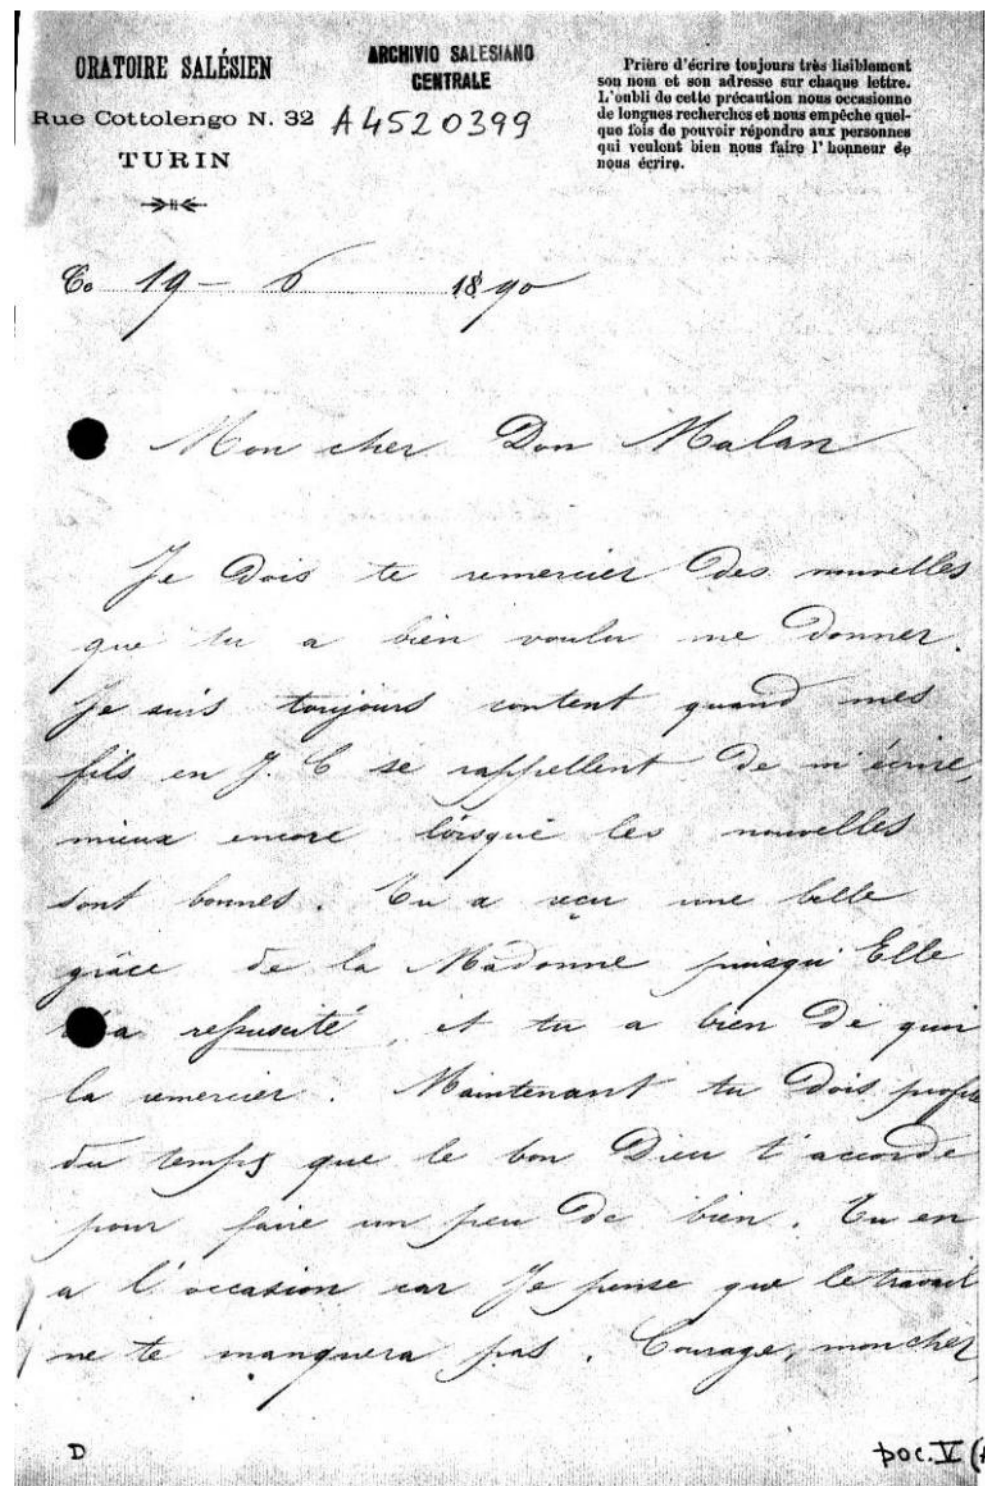 ORATOIRE SALÉSIEN
Rue Cottolengo N. 32
TURIN
ARCHIVIO SALESIANO
CENTRALE
A4520399
Prière d'écrire toujours très lisiblement
son nom et son adresse sur chaque lettre.
L'oubli de cette précaution nous occasionne
de longues recherches et nous empêche quel-
que fois de pouvoir répondre aux personnes
qui veulent bien nous faire l'honneur de
nous écrire.
Ce 19 - 6 1890
Mon cher Don Malan
Je dois te remercier des nouvelles
que tu a bien voulu me donner.
Je suis toujours content quand mes
fils en J. C se rappellent de m'écrire,
mieux encore lorsque les nouvelles
sont bonnes. Tu a reçu une belle
grâce de la Madonne puisqu'Elle
a ressuscité, et tu a bien de quoi
la remercier. Maintenant tu dois profite
du temps que le bon Dieu t'accorde
pour faire un peu de bien. Tu en
a l'occasion car Je pense que le travail
ne te manquera pas. Courage, mon cher,
D
DOC. V (